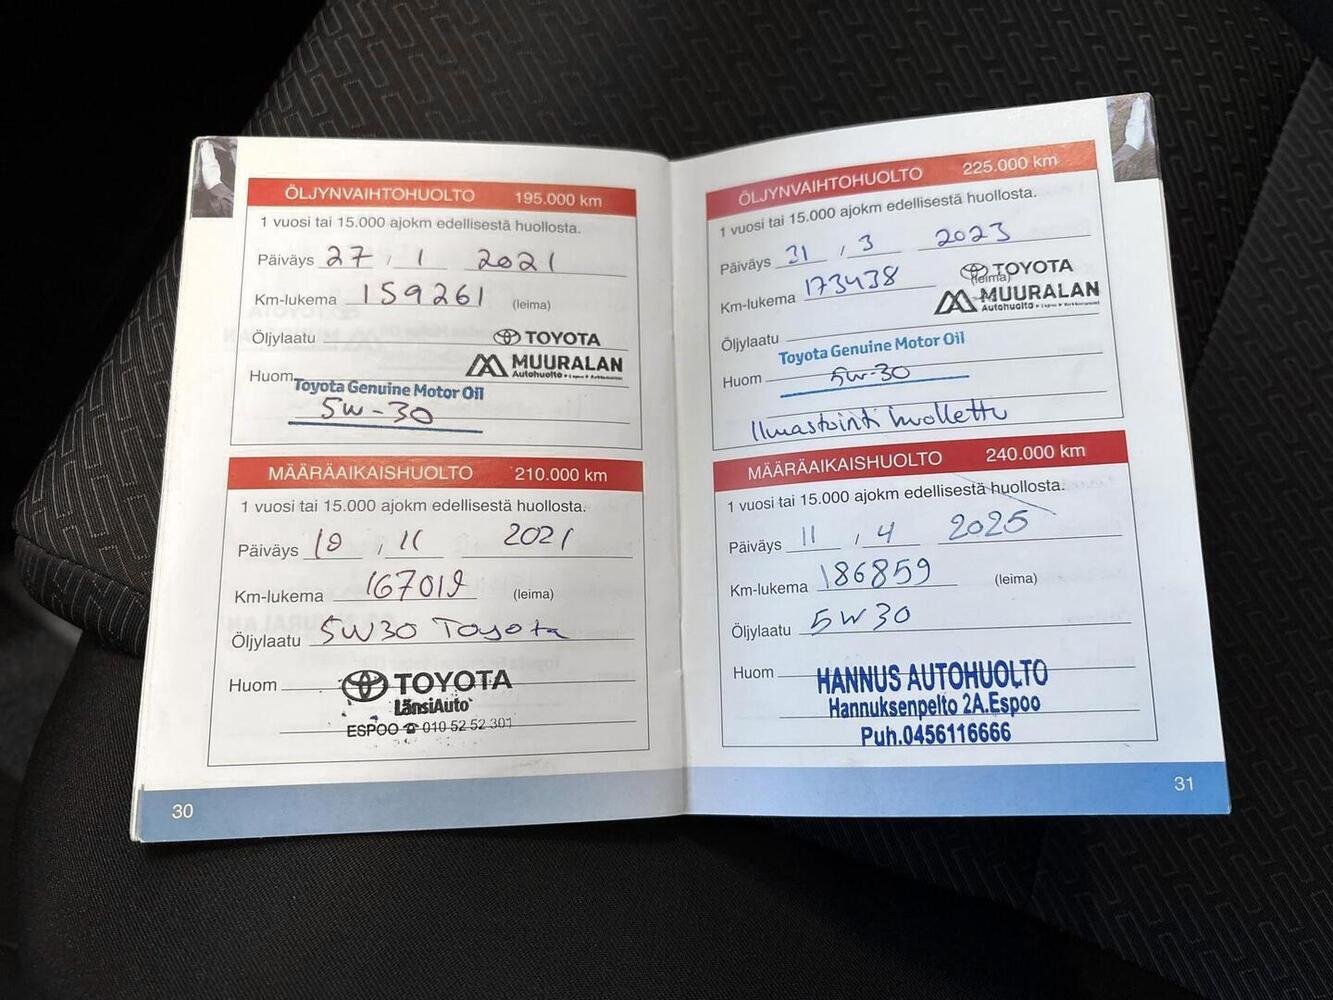 ÖLJYNVAIHTOHUOLTO 195.000 km
1 vuosi tai 15.000 ajokm edellisestä huollosta.
Päiväys 27 , 1 2021
Km-lukema 159261 (leima)
Öljylaatu TOYOTA
MUURALAN
Autohuolto
Huom Toyota Genuine Motor Oil
5W-30
MÄÄRÄAIKAISHUOLTO 210.000 km
1 vuosi tai 15.000 ajokm edellisestä huollosta.
Päiväys 10 , 11 2021
Km-lukema 167019 (leima)
Öljylaatu 5W30 Toyota
Huom TOYOTA
LänsiAuto
ESPOO ☎ 010 52 52 301
30
ÖLJYNVAIHTOHUOLTO 225.000 km
1 vuosi tai 15.000 ajokm edellisestä huollosta.
Päiväys 31 , 3 2023
Km-lukema 173438 (leima)
TOYOTA
MUURALAN
Autohuolto
Öljylaatu
Toyota Genuine Motor Oil
Huom 5W-30
Ilmastointi huollettu
MÄÄRÄAIKAISHUOLTO 240.000 km
1 vuosi tai 15.000 ajokm edellisestä huollosta.
Päiväys 11 , 4 2025
Km-lukema 186859 (leima)
Öljylaatu 5W30
Huom HANNUS AUTOHUOLTO
Hannuksenpelto 2A.Espoo
Puh.0456116666
31